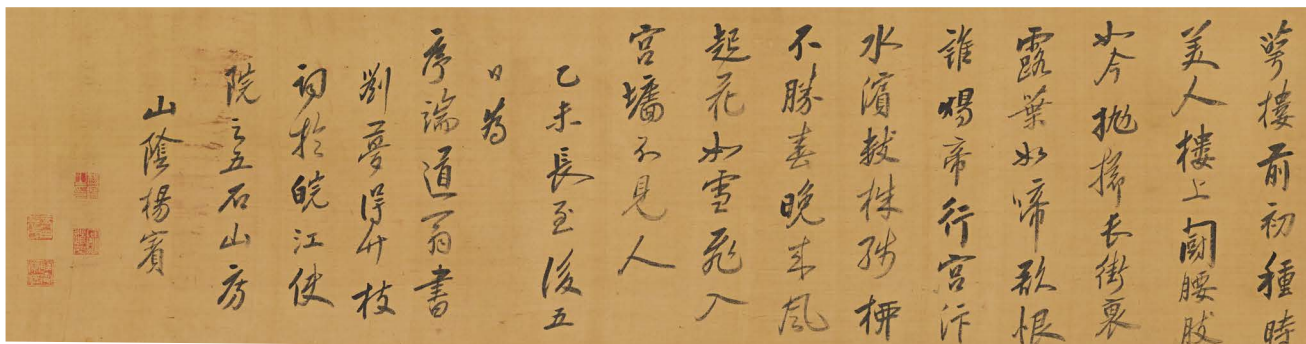 萼樓前初種時
美人樓上鬭腰肢
如今拋擲長街裏
露葉如啼欲恨
誰煬帝行宮汴
水濱數株殘栁
不勝春晚來風
起花如雪飛入
宮墻不見人
乙未長至後五
日為
序端道翁書
劉夢得竹枝
詞於皖江使
院之五石山房
山陰楊賓